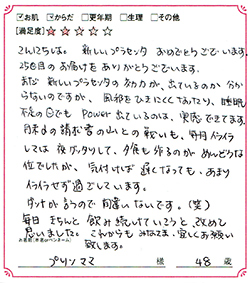 ☑お肌 ☑からだ □更年期 □生理 □その他
[満足度]★☆☆☆☆
こんにちは。新しいプラセンタ おめでとうございます。
2回目のお届けをありがとうございます。
まだ新しいプラセンタの効力が、出ているのか分か
らないのですが、風邪をひきにくくなったり、睡眠
不足の日でも Powerが出ているのは、実感できてます。
月末の請求書の山との戦いも、毎月イライラ
しては夜グッタリして、夕食も作るのがめんどうな
位でしたが、気付けば遅くなっても、あまり
イライラせず過ごしています。
ダンナが言うので間違いないです。(笑)
毎日きちんと飲み続けていこうと、改めて
思いました。これからもみなさま、宜しくお願い
致します。
お名前(本名orペンネーム)
プリンママ 様 48 歳